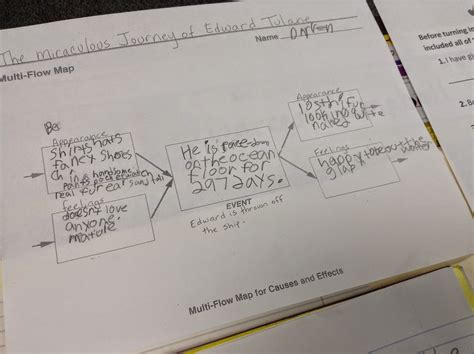 The Miraculous Journey of Edward Tulane
Name Darren
Multi-Flow Map
Be
Appearance
shirts hats
fancy shoes
pants pocket watch
real fur ears and tail
feelings
doesn't love
anyone.
mature
He is face down
on the ocean
floor for
297 days.
EVENT
Edward is thrown off
the ship.
Appearance
lost his fur
looking
naked
Feelings
happy to be out the water
glad
Multi-Flow Map for Causes and Effects
Before turning in
included all of
1. I have giv